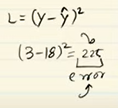 L = (y - ŷ)²
(3-18)² = 225
error